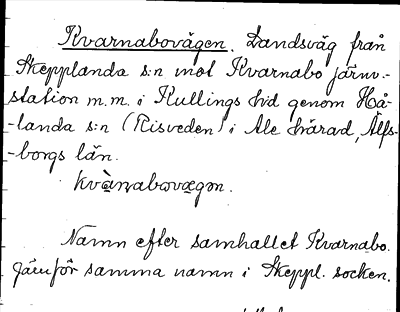 Kvarnabovägen. Landsväg från
Skepplanda s:n mot Kvarnabo järnv.-
station m.m. i Kullings hd genom Hå-
-landa s:n (Risveden) i Ale härad, Älfs-
-borgs län.
kvànabovægən.
Namn efter samhället Kvarnabo.
Jämför samma namn i Skeppl. socken.